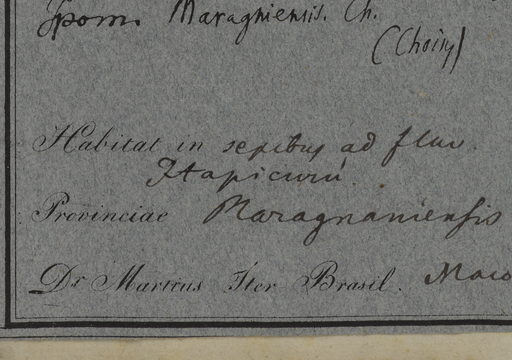 Ipom. Maragniensis. Ch.
(Choisy)
Habitat in sepibus ad fluv.
Itapicurú.
Provinciae Maragnaniensis
Dr Martius Iter Brasil.